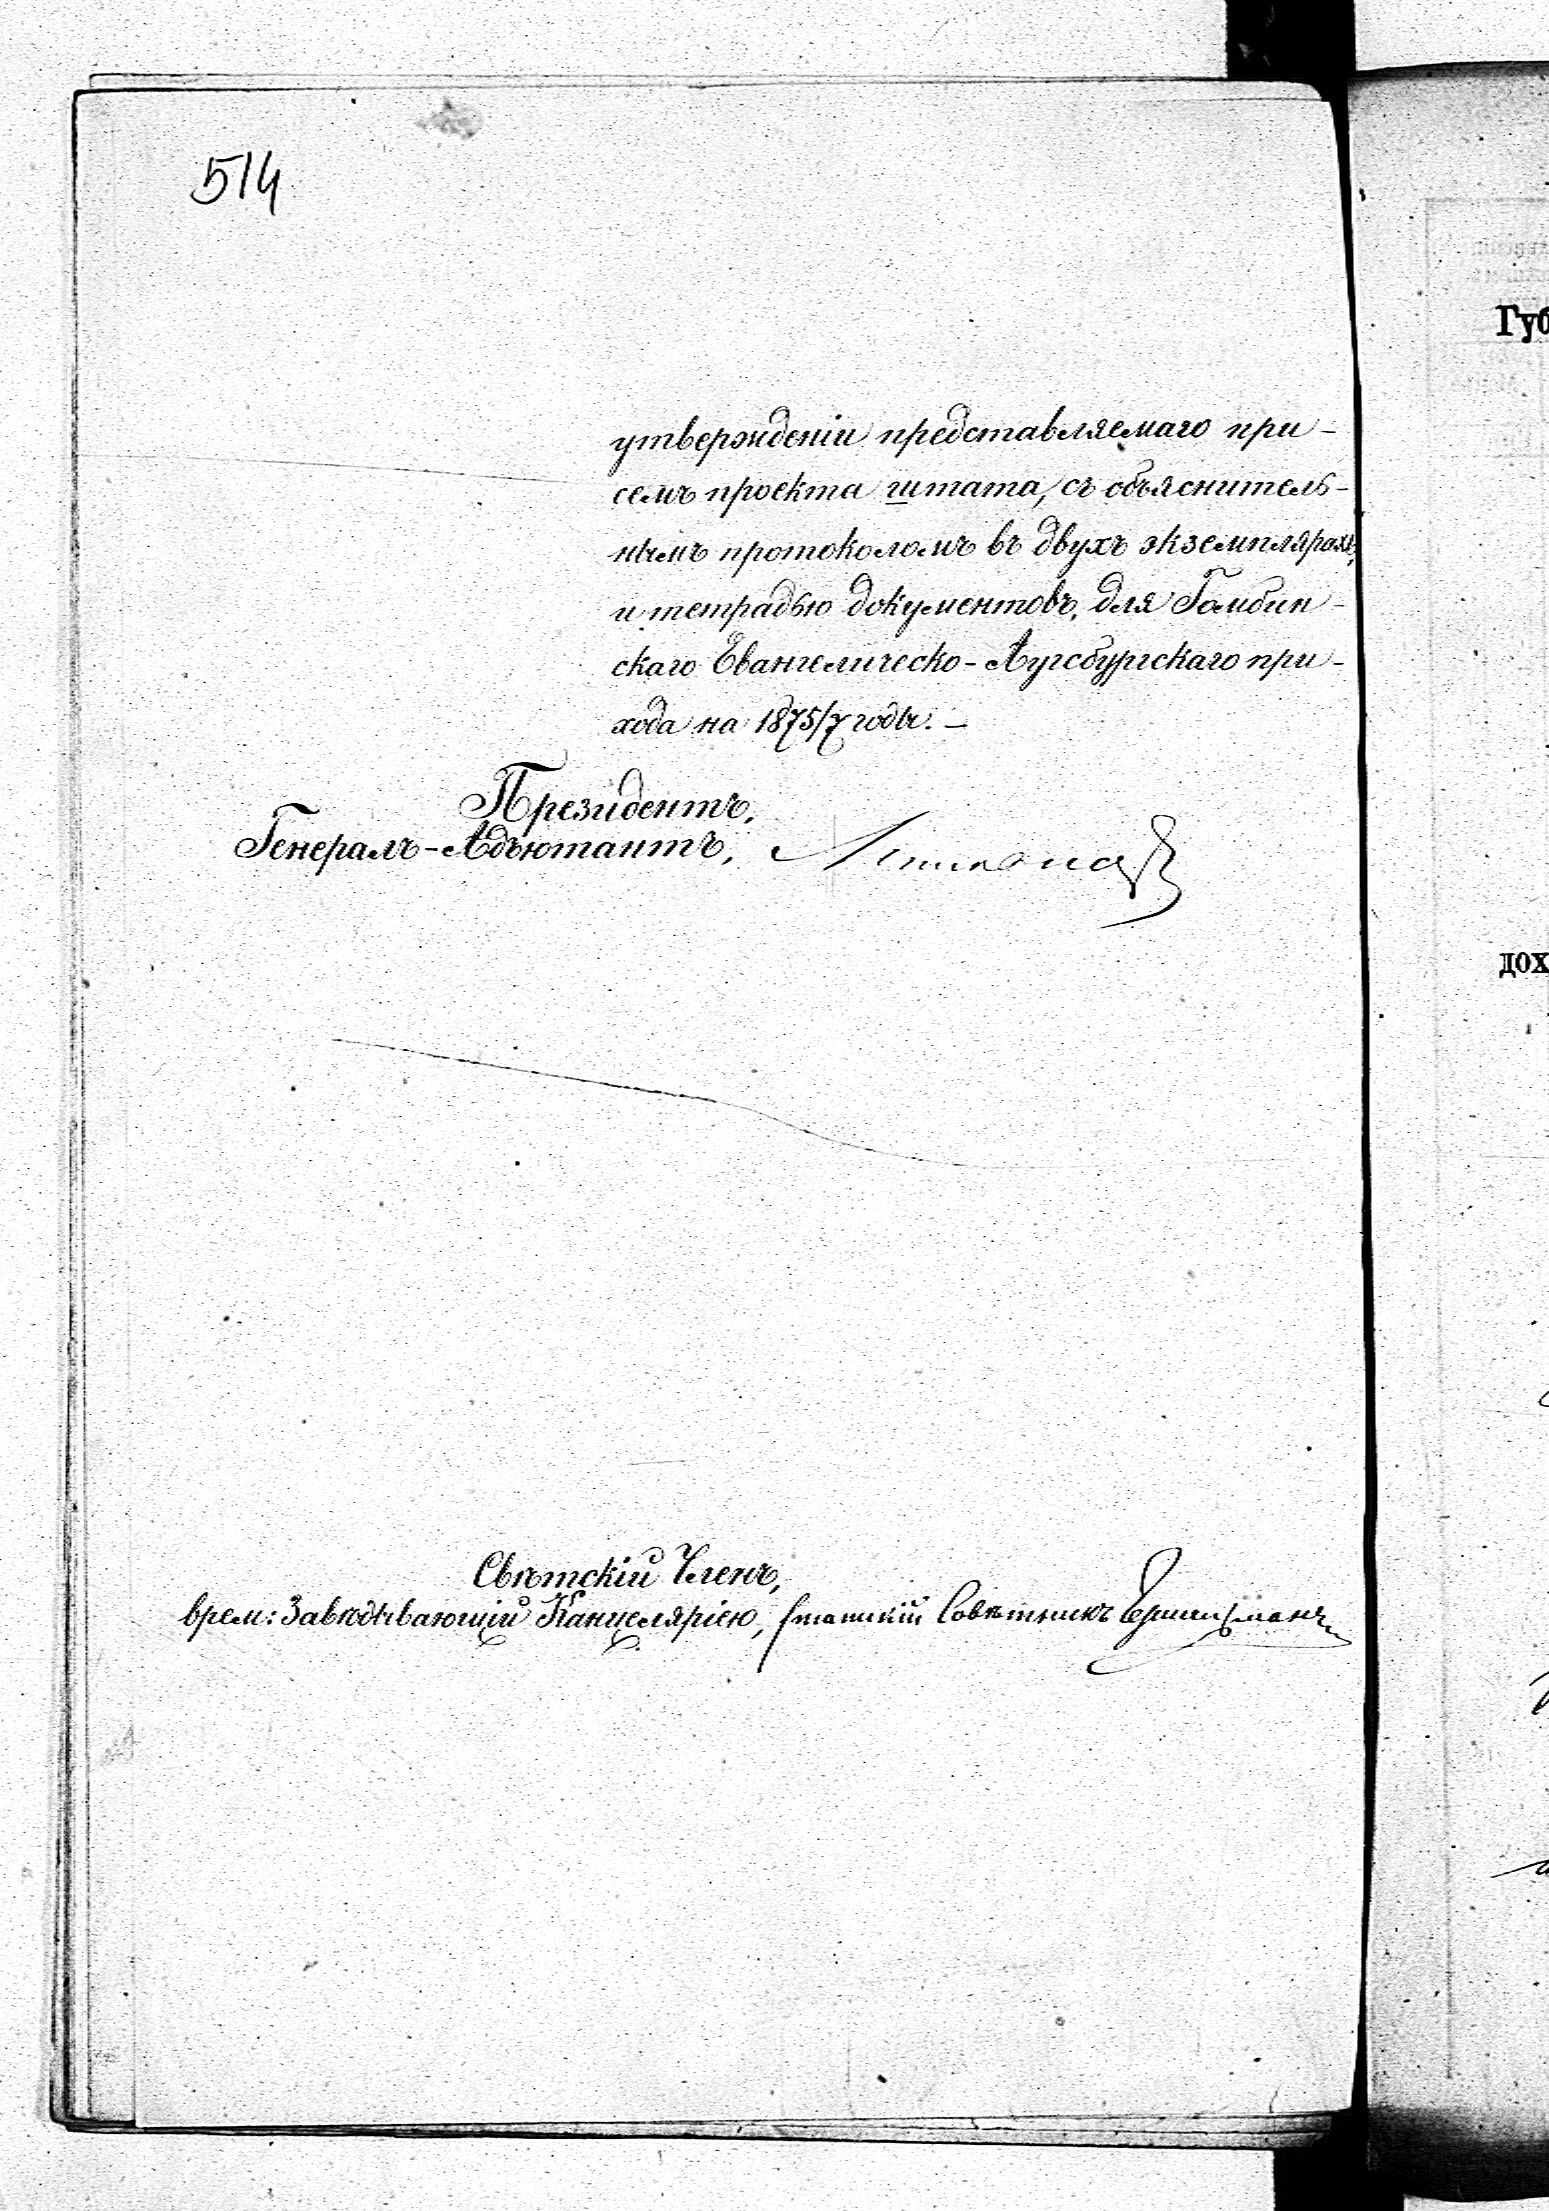 514
утвержденіи представляемаго при-
семъ проекта штата, съ объяснитель-
нымъ протоколомъ въ двухъ экземплярахъ,
и тетрадью документовъ, для Гомбин-
скаго Евангелическо-Аугсбургскаго при-
хода на 1875/7 годы. –
Президентъ,
Генералъ-Адъютантъ,
Свѣтскій Членъ,
врем: Завѣдывающій Канцеляріею, Статскій Совѣтникъ
Губ
дох